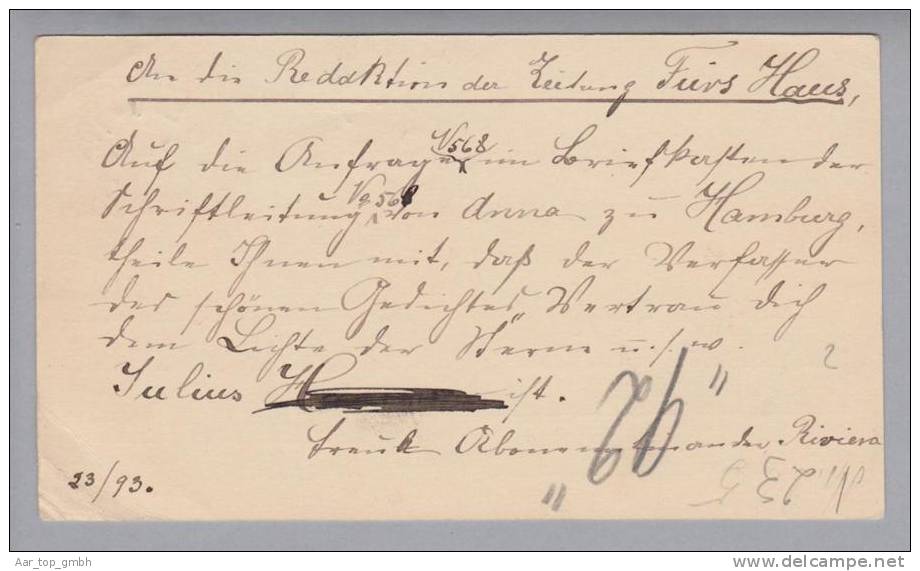 An die Redaktion der Zeitung Fürs Haus,
Auf die Anfrage N 568 im Briefkasten der
Schriftleitung No 568 von Anna zu Hamburg,
theile Ihnen mit, daß der Verfasser
des schönen Gedichtes „Vertrau Dich
dem Lichte der Sterne u. s. w.
Julius H ist.
Abonnentin an der Riviera
23/93.
Aar_top_gmbh
www.delcampe.net